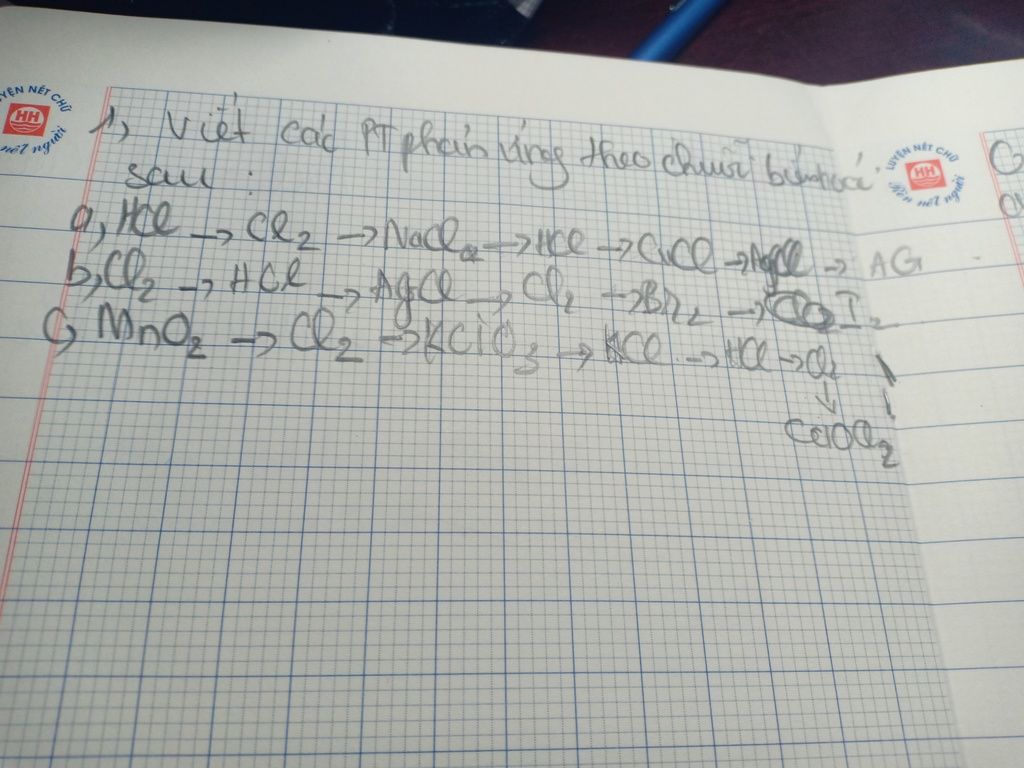 LUYỆN NẾT CHỮ
HH
Rèn nết người
1, Viết các PT phản ứng theo chuỗi biến hoá
sau :
a, HCl → Cl2 → NaCl → HCl → CuCl → AgCl → AG
b, Cl2 → HCl → AgCl → Cl2 → Br2 → I2
c, MnO2 → Cl2 → KClO3 → KCl → HCl → Cl2
↓
CaOCl2
YỆN NẾT CHỮ
HH
nết người